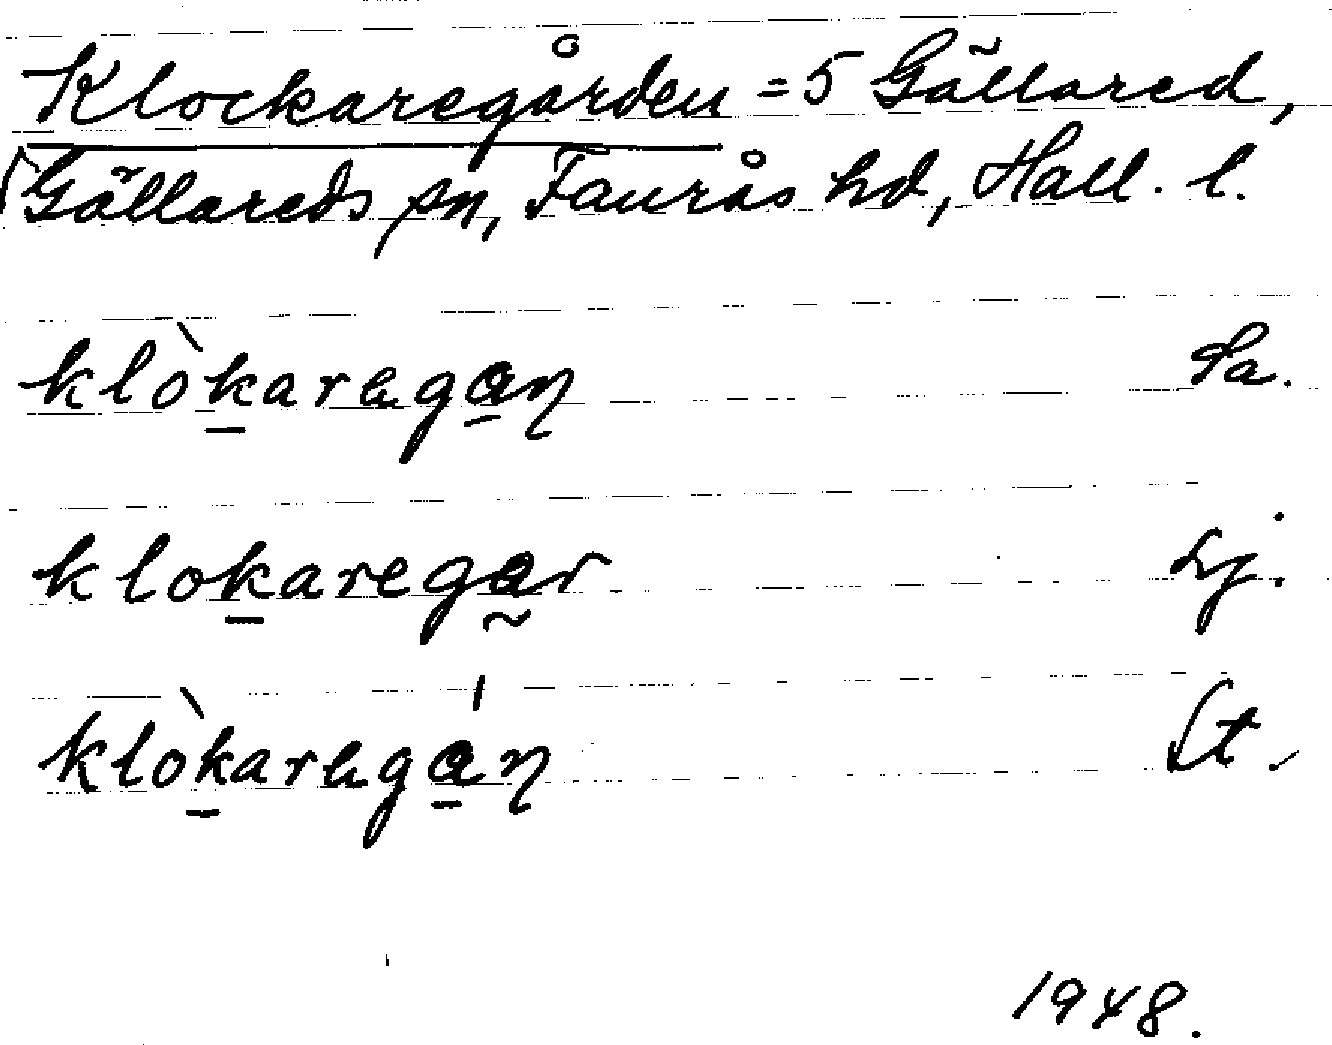 Klockaregården = 5 Gällared,
Gällareds sn, Faurås hd, Hall. l.
klòkaregan Sa.
klokaregar Lj.
klòkaregán St.
1948.